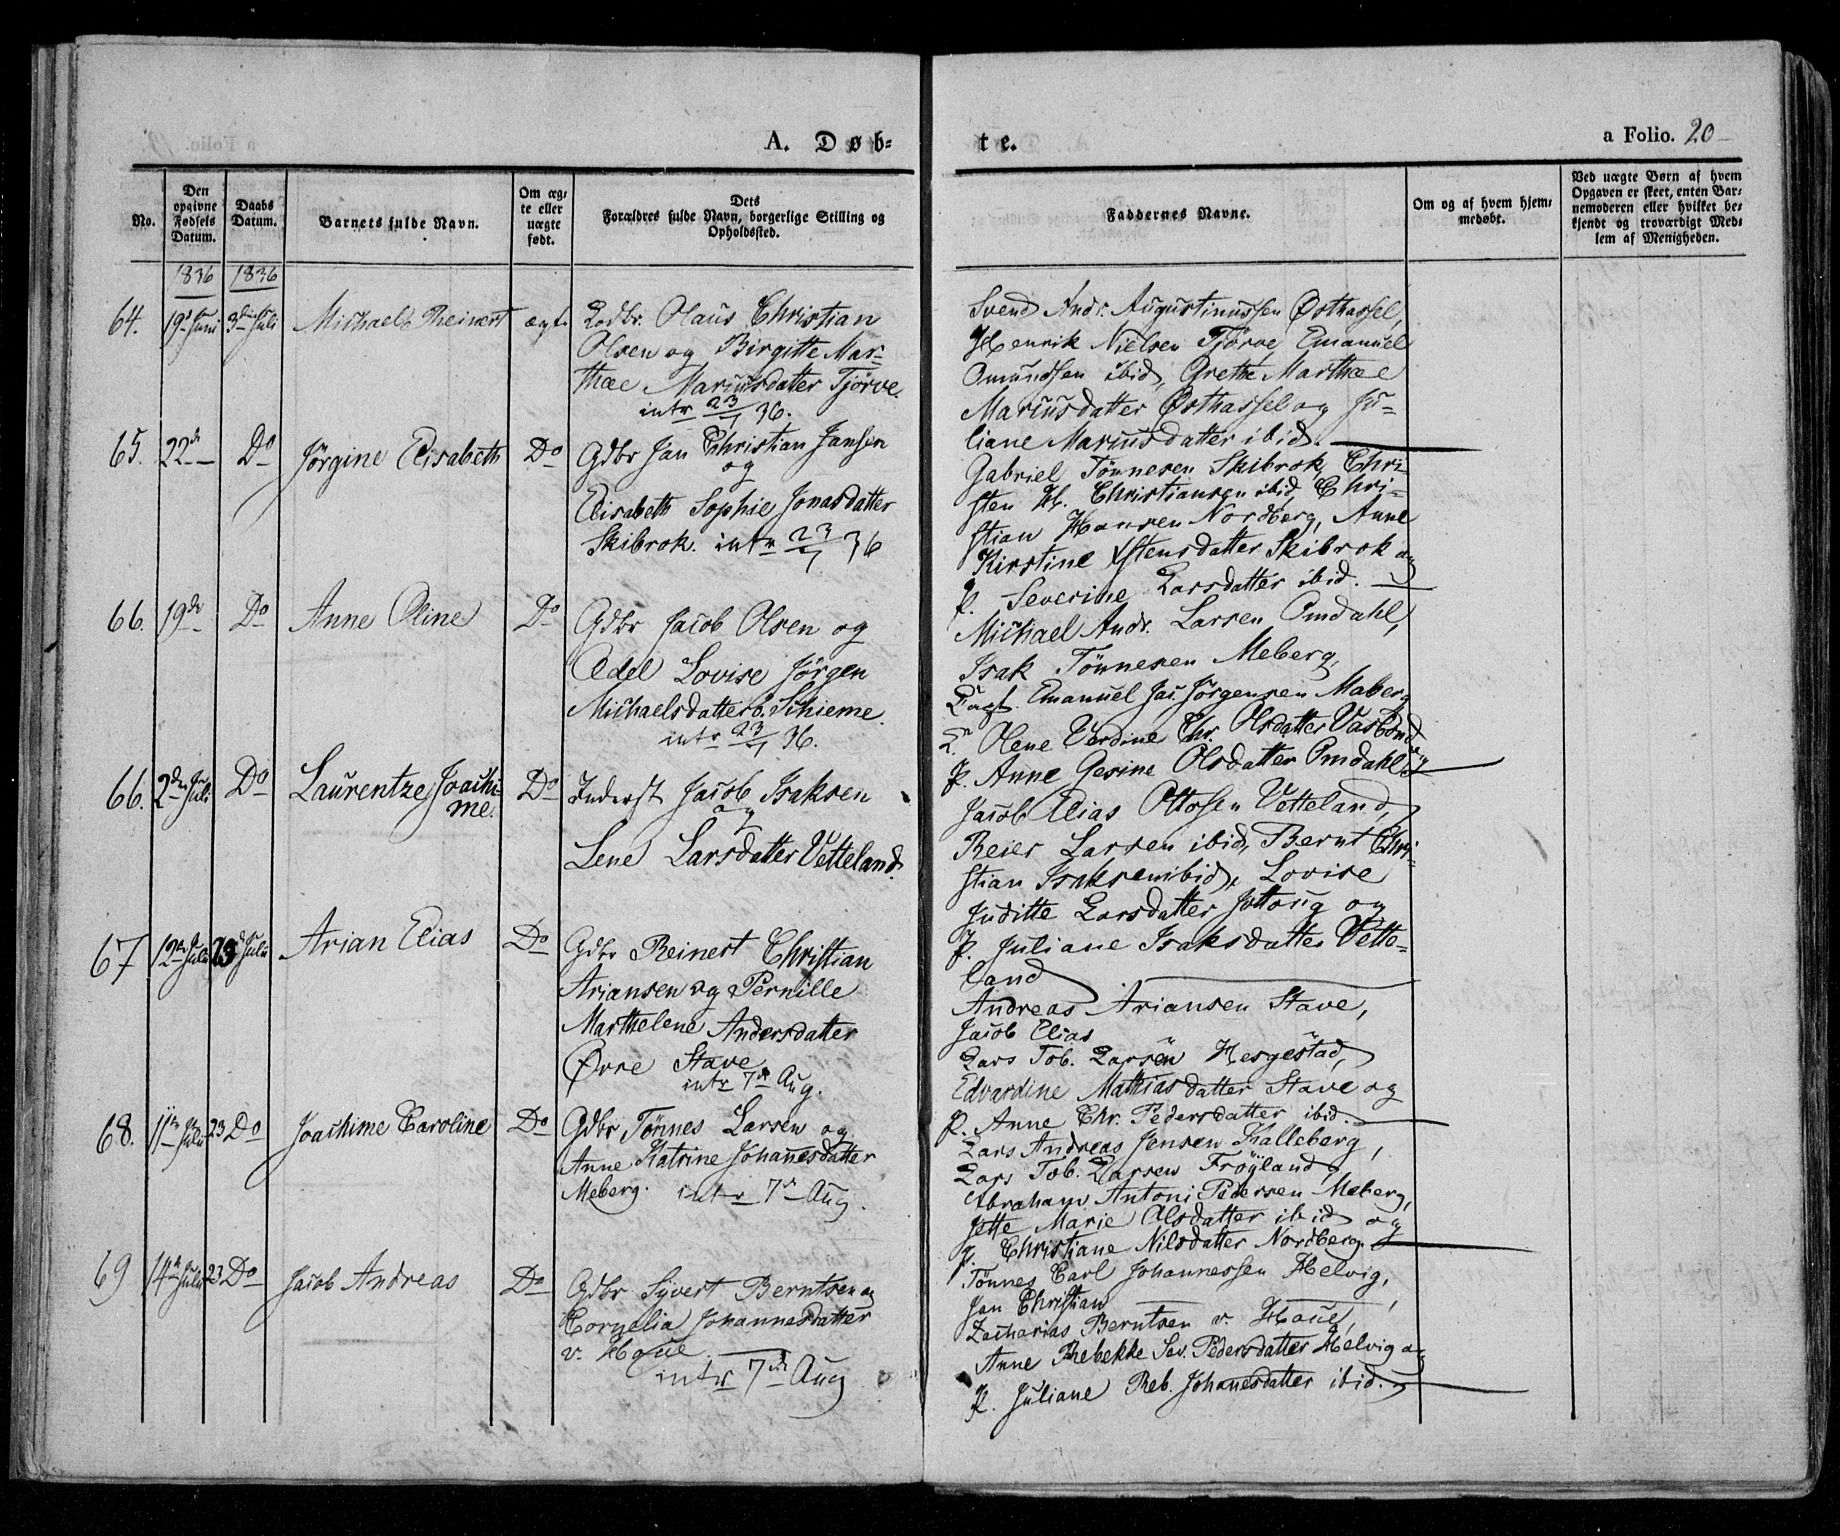 A. Døb=
te.
a Folio. 20
No.
Den opgivne Fødsels Datum.
Daabs Datum.
Barnets fulde Navn.
Om æg= te eller uægte født.
Dets Forældres fulde Navn, borgerlige Stilling og Opholdssted.
Faddernes Navne.
Om og af hvem hjem= medøbt.
Ved uægte Børn af hvem Opgaven er skeet, enten Bar= nemoderen eller hvilket be= kjendt og troværdigt Med= lem af Menigheden.
1836 1836
64. 19de Juni 3die Juli Michael Reinert ægte
Olaus Christian
Olsen og Birgitte Mar=
thæ Mariusdatter Tjörve.
intr 23/7 36.
Svend Andr. Augustinussen Østhassel,
Henrik Nielsen Tjörve Emanuel
Omundsen ibid, Grethe Marthæ
Mariusdatter Østhassel og Ju=
liane Mariusdatter ibid.
65. 22de Do Jörgine Elisabeth Do
Gdbr Jan Christian Jansen
og
Elisabeth Sophie Jonasdatter
Skibrok. intr 23/7 36
Gabriel Tönnesen Skibrok, Chri=
sten H. Christiansen ibid, Chri=
stian Hansen Nordberg, Anne
Kirstine Ystensdatter Skibrok og
P. Severine Larsdatter ibid.
66. 19de Do Anne Oline Do
Gdbr Jacob Olsen og
Adel Lovise Jörgen
Michaelsdatter ö. Skieme.
intr 23/7 36.
Michael Andr. Larsen Omdahl,
Isak Tönnesen Meberg,
Emanuel Jac. Jörgensen Maberg
Olene Verdine Chr. Olsdatter Vasbond
P. Anne Gesine Olsdatter Omdahl
66. 2den Juli Do Laurentze Joachi=
me. Do
Inderst Jacob Isaksen
og
Lene Larsdatter Vetteland.
Jacob Elias Ottosen Vetteland,
Reier Larsen ibid, Bernt Chri=
stian Isaksen ibid, Lovise
Juditte Larsdatter Jöttoug og
P. Juliane Isaksdatter Vette=
land
67 12te Juli 23de Juli Arian Elias Do
Gdbr Reinert Christian
Ariansen og Pernille
Marthelene Andersdatter
Övre Stave
intr 7de Aug.
Andreas Ariansen Stave,
Jacob Elias
Lars Tob. Larsen Hesgestad,
Edvardine Mathiasdatter Stave og
P. Anne Chr. Pedersdatter ibid.
68. 11te Juli 23 Do Joachime Caroline Do
Gdbr Tönnes Larsen og
Anne Katrine Johannesdatter
Meberg. intr 7de Aug.
Lars Andreas Jensen Kalleberg,
Lars Tob. Larsen Fröyland,
Abraham Antoni Pedersen Meberg,
Jette Marie Olsdatter ibid og
P. Christiane Nilsdatter Nordberg.
69 14de Juli 23 Do Jacob Andreas Do
Gdbr Syvert Berntsen og
Cornelia Johannesdatter
v. Haue.
intr 7de Aug
Tönnes Carl Johannessen Helvig,
Jan Christian
Zacharias Berntsen v. Haue,
Anne Rebekke Sev. Pedersdatter Helvig og
P. Juliane Reb. Johanesdatter ibid.